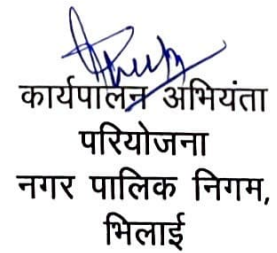 कार्यपालन अभियंता
परियोजना
नगर पालिक निगम,
भिलाई